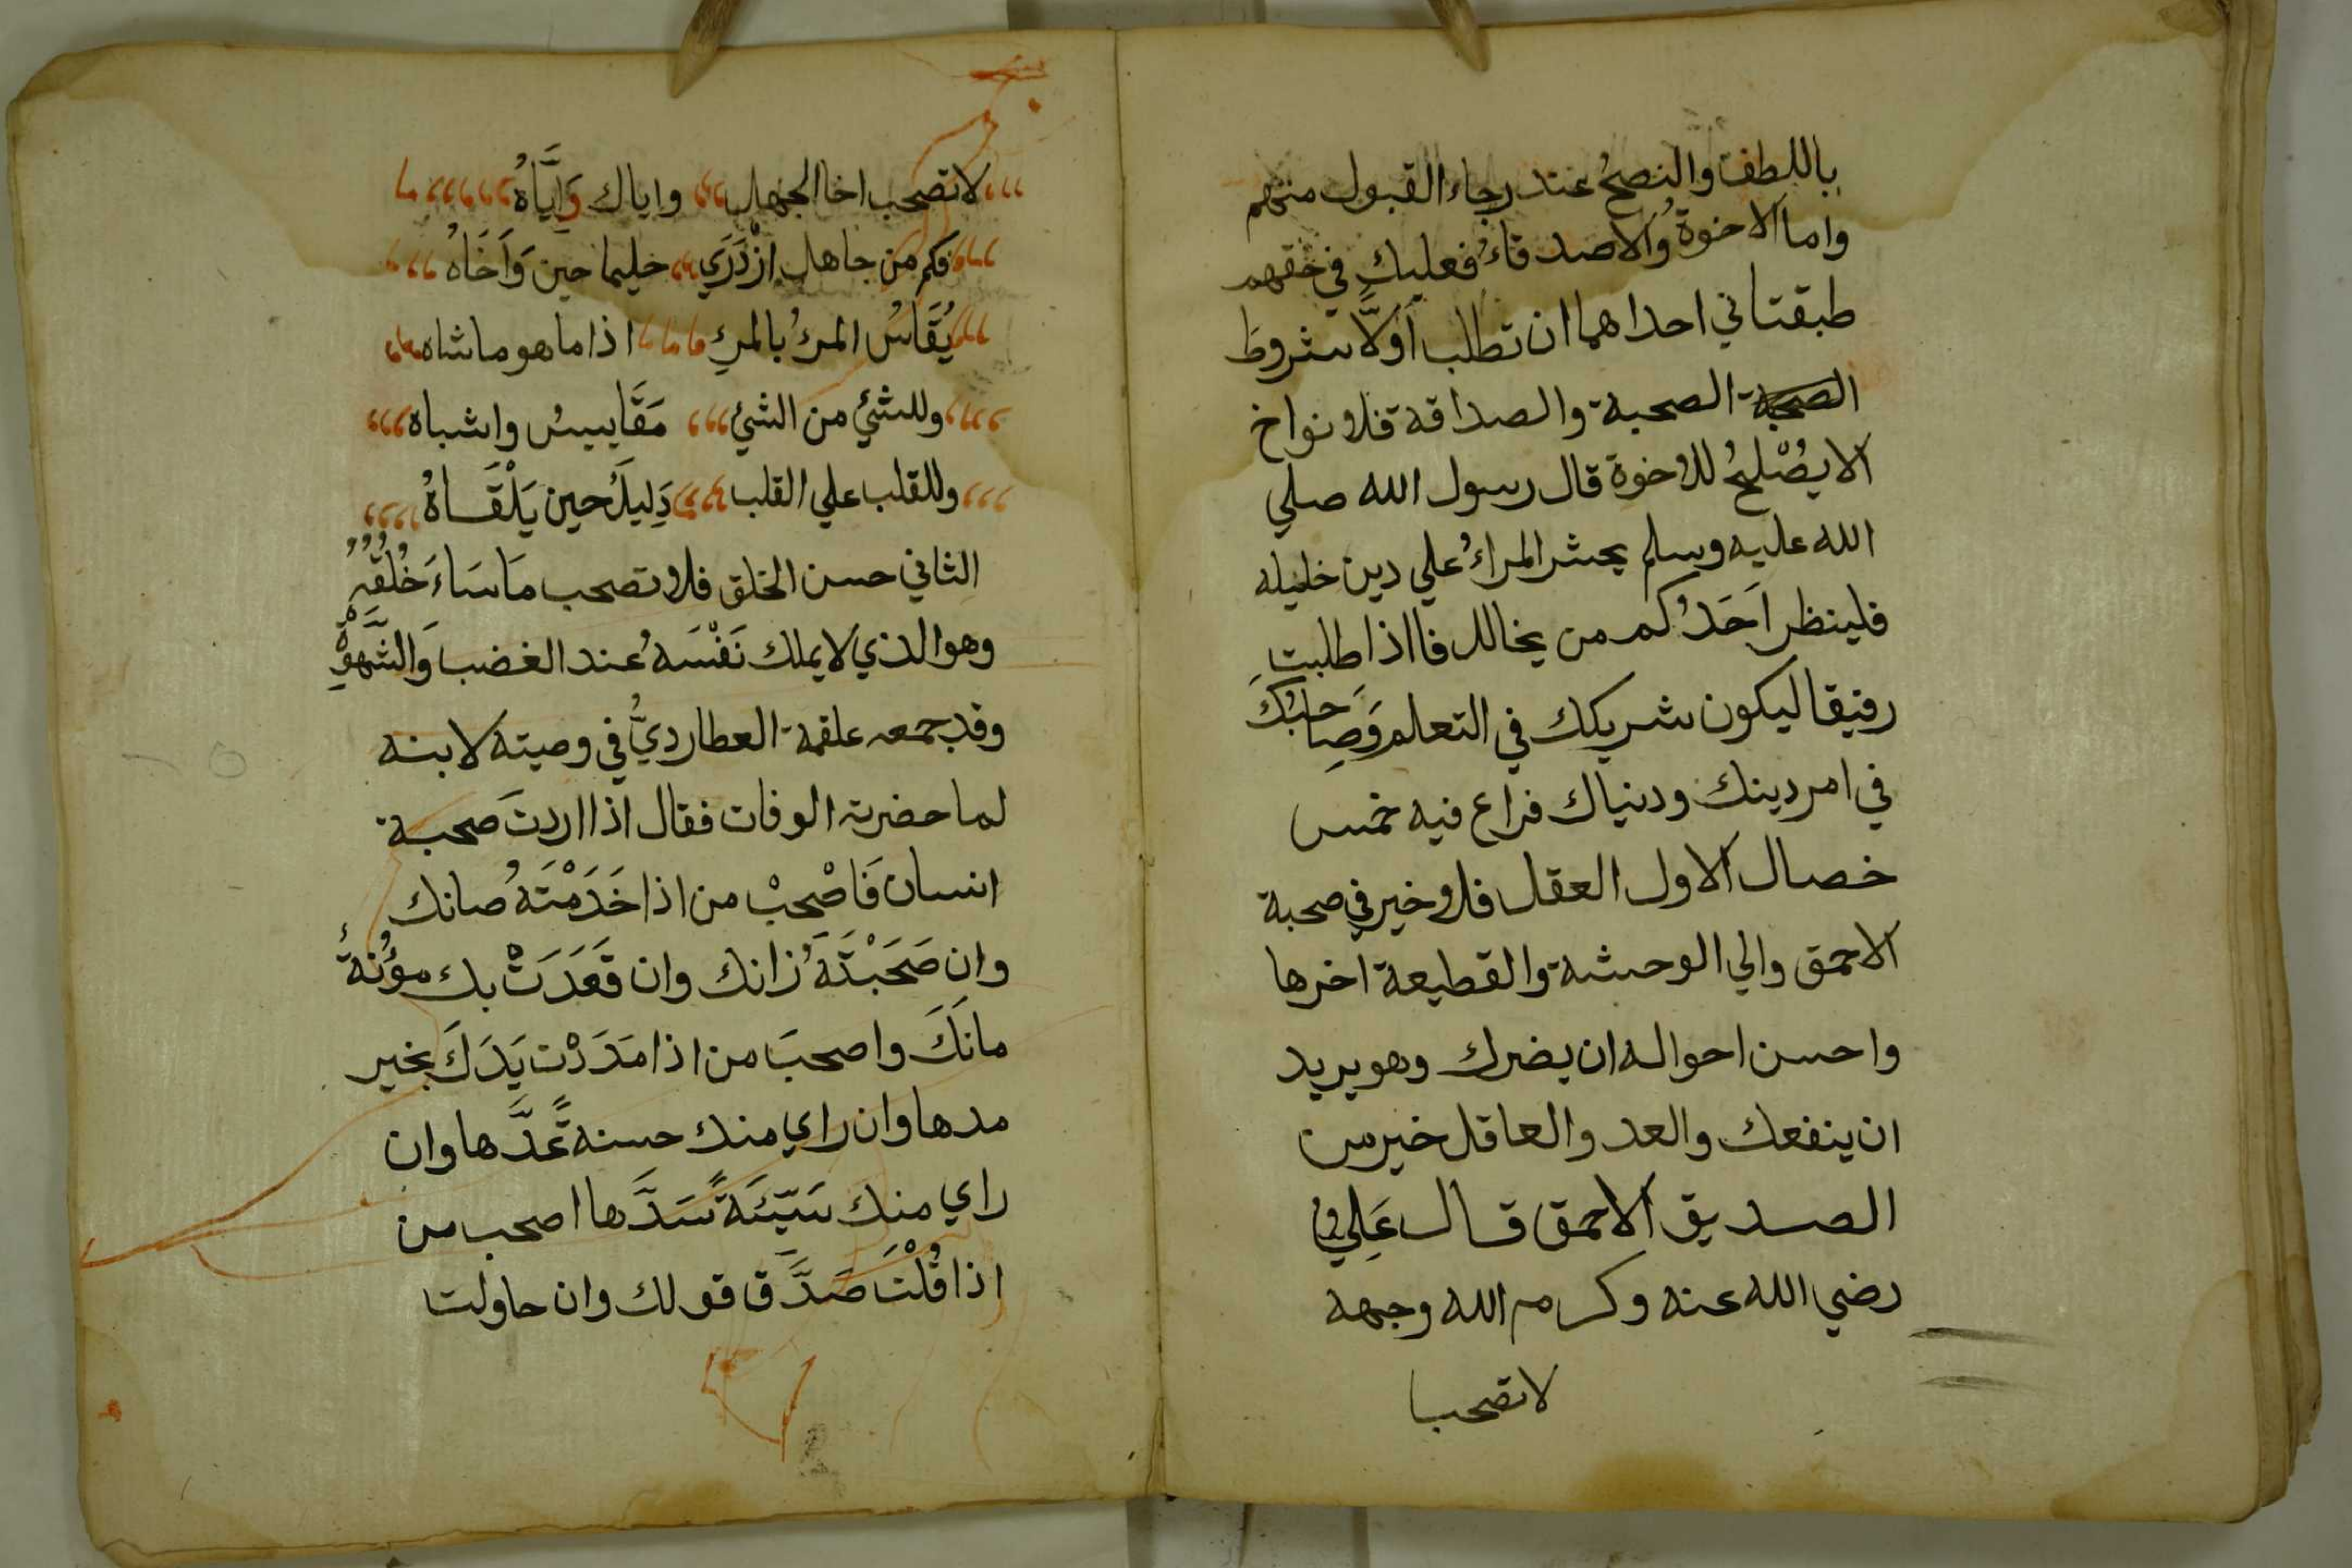 باللطف والنصحُ عند رجاء القبول منهم
واما الاخوة والاصدقاءُ فعليك في حقهم
طبقتاني احداهما ان تطلب اَوَّلاً شروط
الصحبة الصحبة والصداقة فلا نواخ
الا يصْلحُ للاخوة قال رسول الله صلي
الله عليه وسلم يحشر المراءُ علي دين خليله
فلينظر اَحَدُكم من يخالل فااذا طلبت
رفيقا ليكون شريكك في التعلم وَصِاحبُكَ
في امر دينك ودنياك فراع فيه خمس
خصال الاول العقل فلا خير في صحبة
الاحمق والي الوحشة والقطيعة اخرها
واحسن احواله ان يضرك وهو يريد
ان ينفعك والعد والعاقل خير من
الصديق الاحمق قال عَلِي
رضي الله عنه وكرم الله وجهه
لا تصحب
لا تصحب اخا الجهل واياك وَاِيَّاهُ
فكم من جاهل ازْدَرَي حليما حين وَاَخَاهُ
يُقَاسُ المرءُ بالمرءِ اذا ما هو ما شاه
وللشئ من الشئ مَقَاييسُ واشباه
وللقلب علي القلب دَلِيلُ حين يَلْقَاهُ
الثاني حسن الخلق فلا تصحب مَا سَاءَ خُلُقُهُ
وهو الذي لا يملك نَفْسَهُ عند الغضب وَالشَّهْوةِ
وقد جمعه علقمة العطارديُّ في وصيته لابنه
لما حضرته الوفات فقال اذا اردتَ صحبة
انسان فَاصْحبْ من اذا خَدَمْتَهُ صانك
وان صَحَبْتَهَُ زانك وان قَعَدَتْ بك مؤُنةُ
مانَكَ واصحبَ من اذا مَدَدْت يَدَكَ بخير
مدها وان راي منك حسنةً عَدَّها وان
راي منك سَيّئَةً سَدَّها اصحب من
اذا قُلْتَ صَدَّق قولك وان حاولت